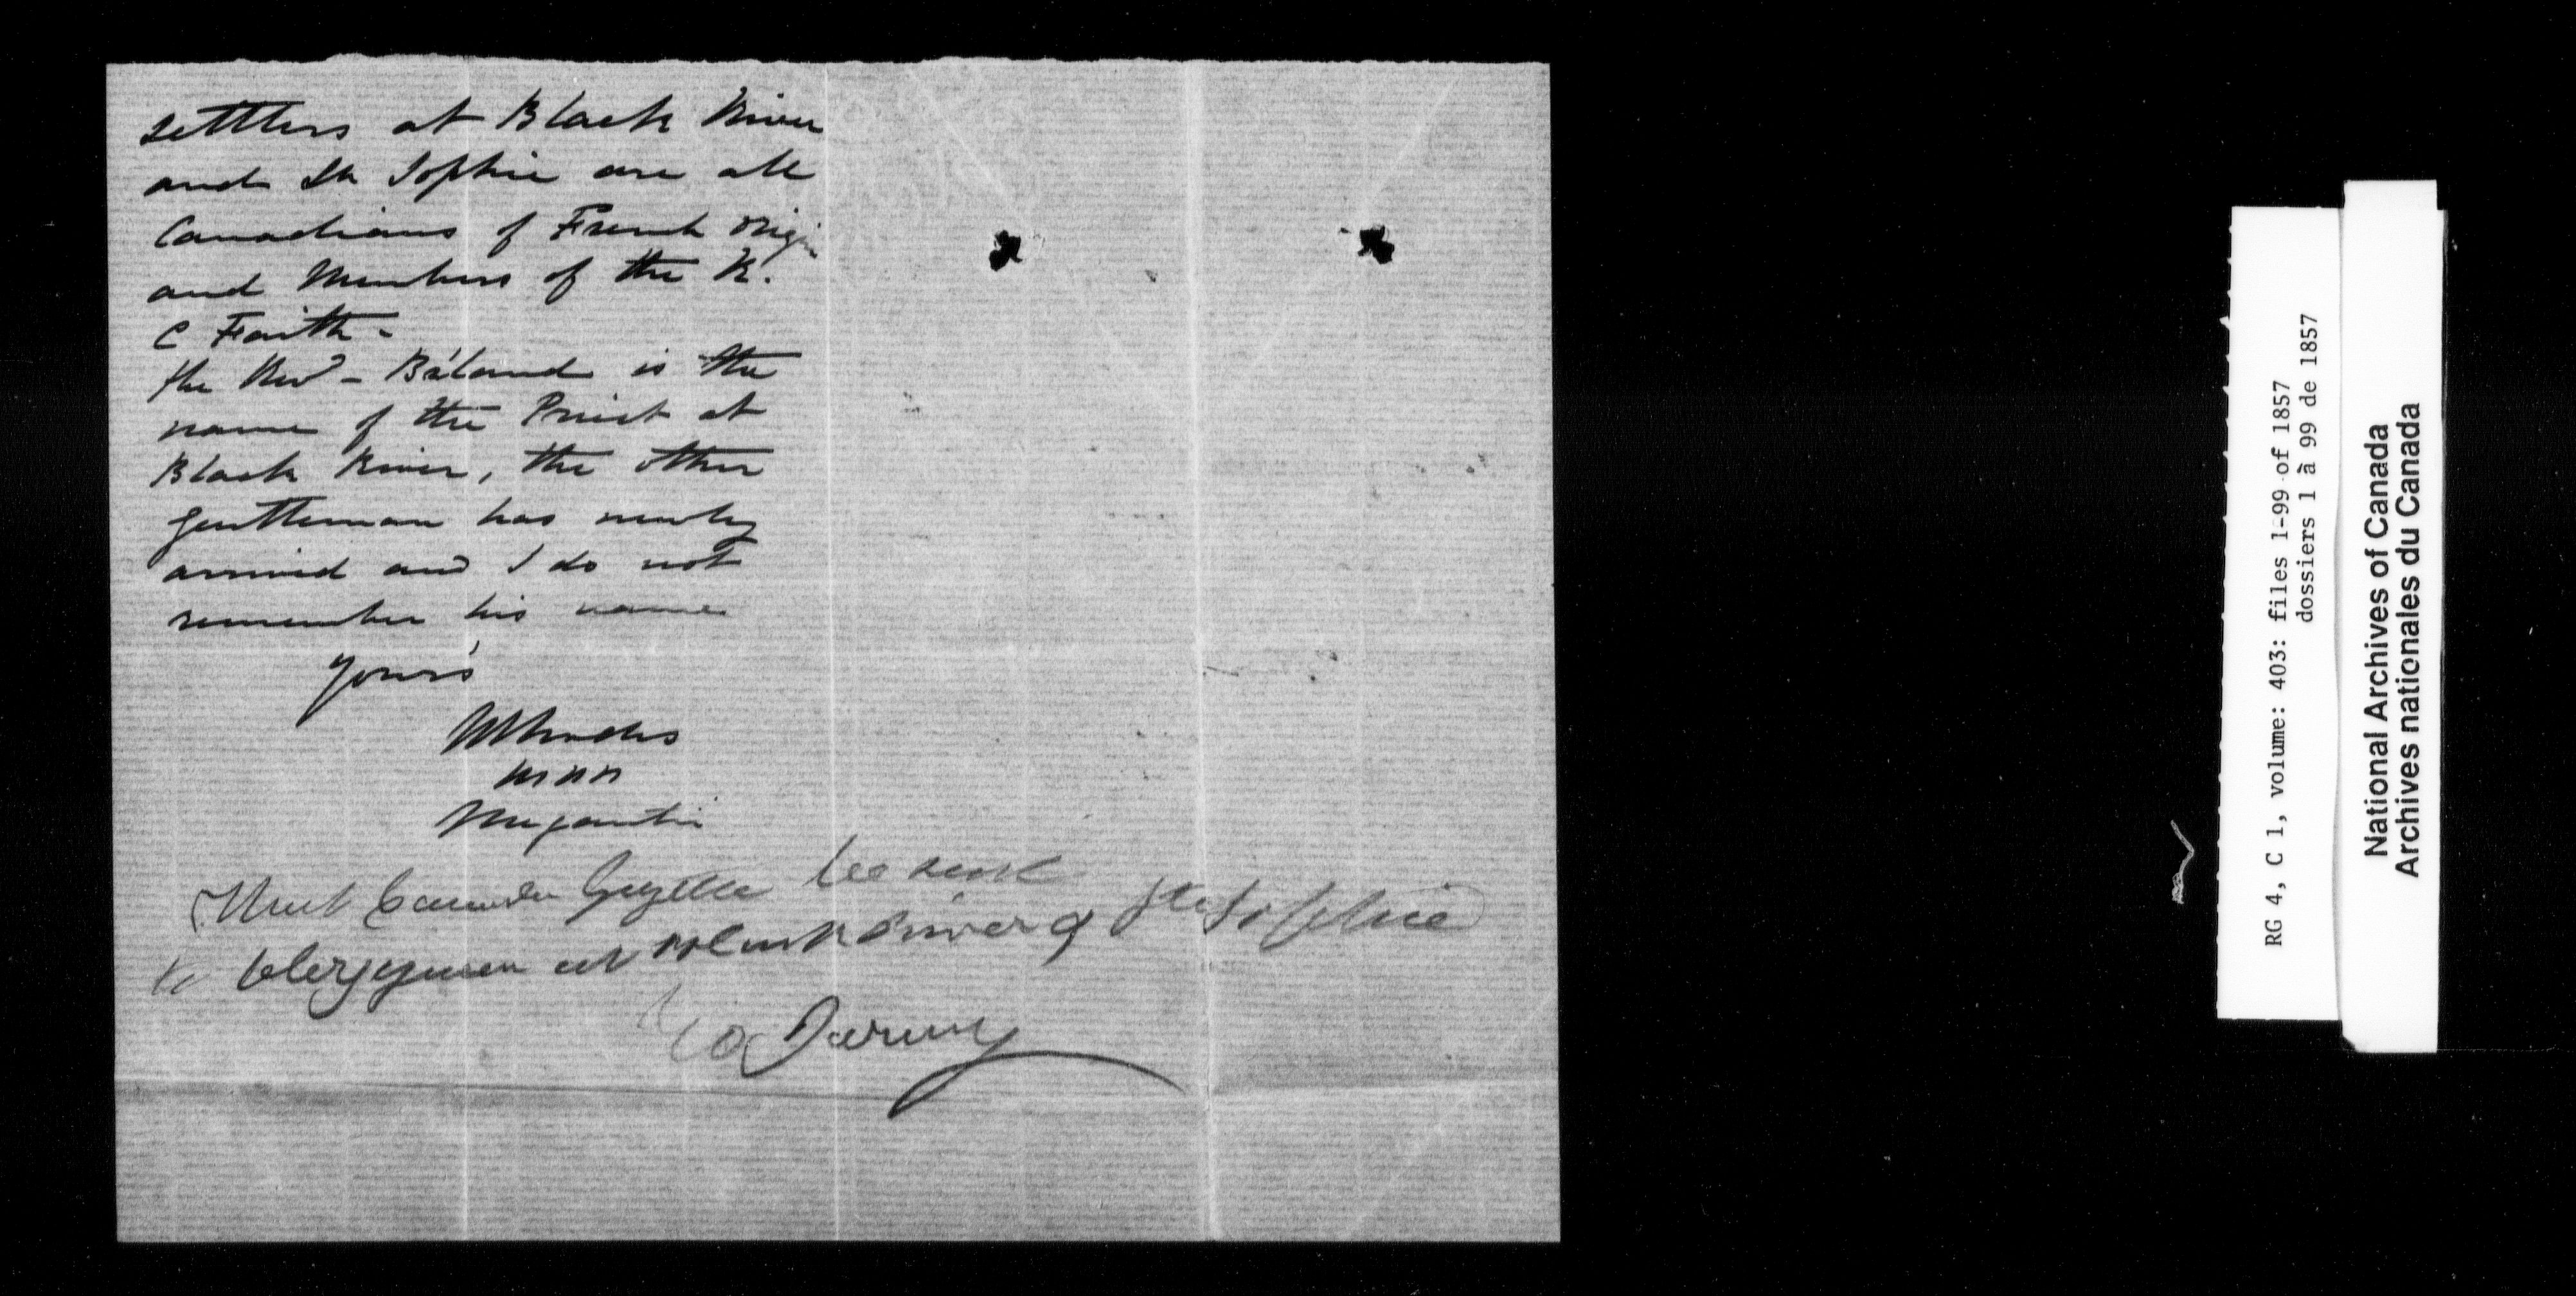 settlers at Black River
and St Sophie are all
Canadians of French origin
and Members of the R.
C Faith -
the Revd - Béland is the
name of the Priest at
Black River, the other
gentleman has newly
arrived and I do not
remember his name
Your's
WRhodes
MPP
Megantic
Canada Gazette be sent
to Clergymen at Black River & Ste Sophie
RG 4, C 1, volume: 403: files 1-99 of 1857
dossiers 1 à 99 de 1857
National Archives of Canada
Archives nationales du Canada